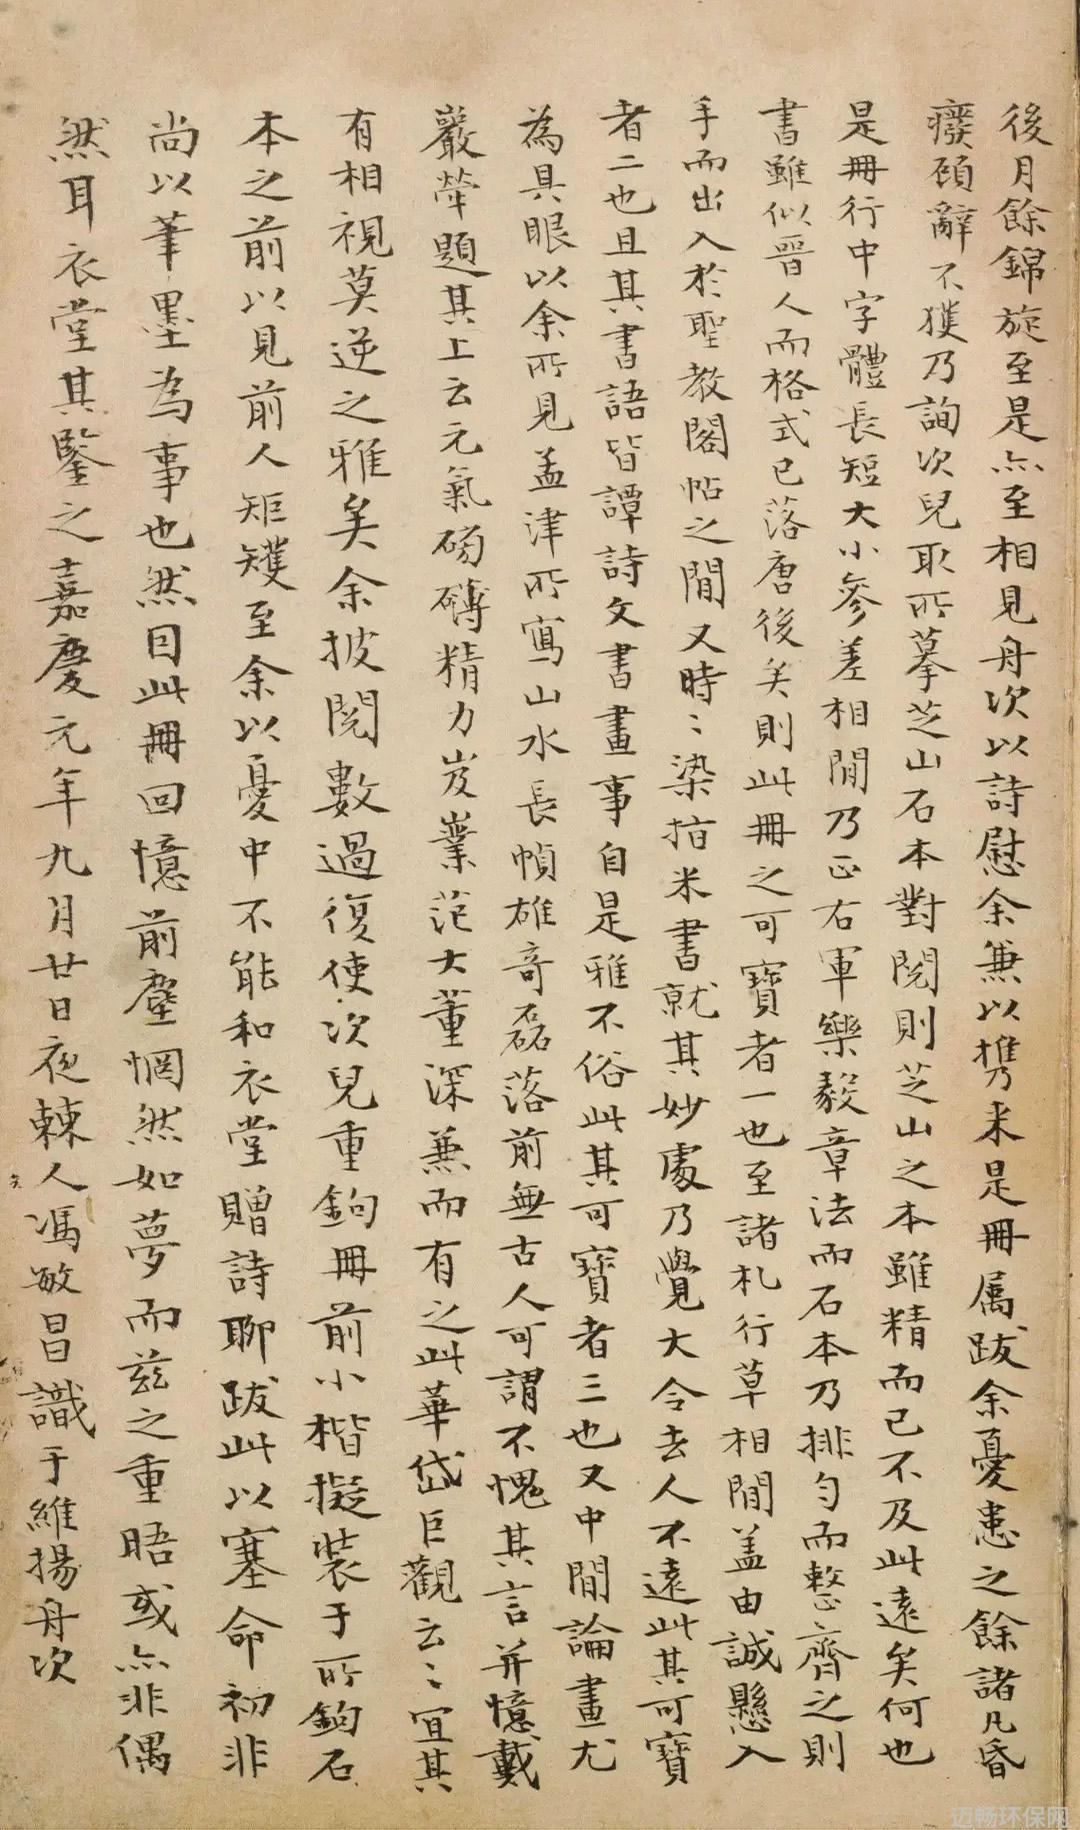 後月餘錦旋至是亦至相見舟次以詩慰余兼以携来是冊属跋余憂患之餘諸凡昏
癈頋辭不獲乃詢次兒取所摹芝山石本對閱則芝山之本雖精而已不及此遠矣何也
是冊行中字體長短大小參差相間乃正右軍樂毅章法而石本乃排勻而整齊之則
書雖似晉人而格式已落唐後矣則此冊之可寶者一也至諸札行草相間盖由誠懸入
手而出入於聖教閣帖之間又時〻染指米書就其妙處乃覺大令去人不遠此其可寶
者二也且其書語皆譚詩文書畫事自是雅不俗此其可寶者三也又中間論畫尤
為具眼以余所見孟津所寫山水長幀雄奇磊落前無古人可謂不愧其言并憶戴
巖犖題其上云元氣磅礴精力岌嶪范大董深兼而有之此華岱巨觀云〻宜其
有相視莫逆之雅矣余披閱數過復使次兒重鉤冊前小楷擬裝于所鉤石
本之前以見前人矩矱至余以憂中不能和衣堂贈詩聊跋此以塞命初非
尚以筆墨為事也然因此冊回憶前塵惘然如夢而兹之重晤或亦非偶
然耳衣堂其鑒之嘉慶元年九月廿日夜棘人馮敏昌識于維揚舟次
迈畅环保网